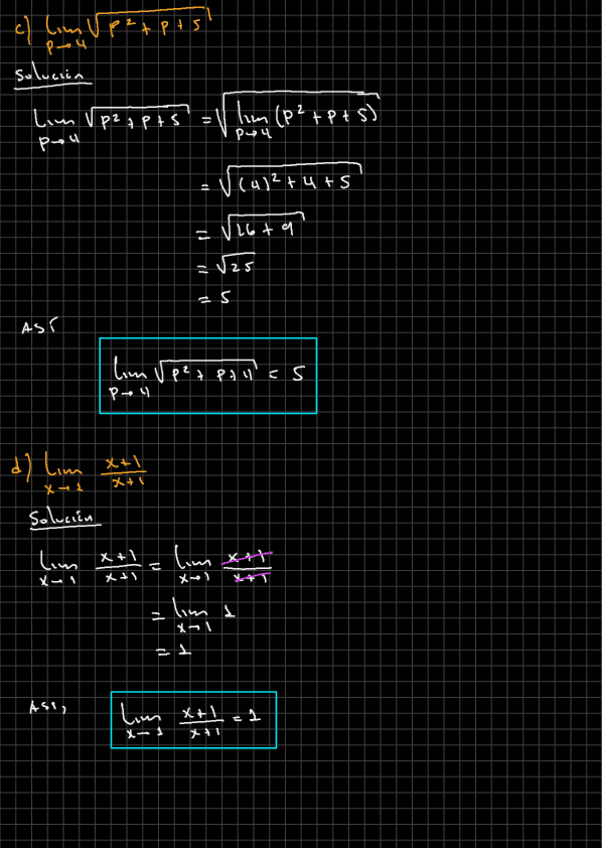 c) lim p→4 √(p² + p + 5)
Solución
lim p→4 √(p² + p + 5) = √(lim p→4 (p² + p + 5))
= √((4)² + 4 + 5)
= √(16 + 9)
= √25
= 5
ASÍ
lim p→4 √(p² + p + 4) = 5
d) lim x→1 (x+1)/(x+1)
Solución
lim x→1 (x+1)/(x+1) = lim x→1 (x+1)/(x+1)
= lim x→1 1
= 1
ASÍ,
lim x→1 (x+1)/(x+1) = 1